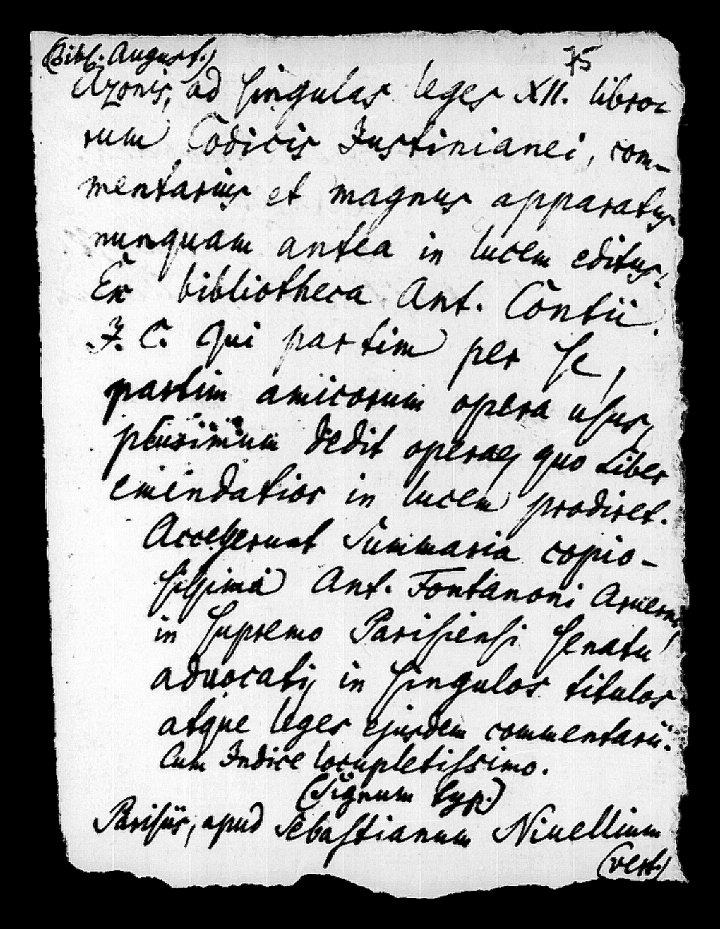 (Bibl. August.) 75
Azonis, ad singulas leges XII. libro-
rum Codicis Justinianei, com-
mentarius et magnus apparatus
nunquam antea in lucem editus.
Ex bibliotheca Ant. Contii
J. C. qui partim per se,
partim amicorum opera usus,
plurimum dedit operae, quo liber
emendatior in lucem prodiret.
Accesserunt Summaria copio-
sissima Ant. Fontanoni Arverni,
in supremo Parisiensi senatu
advocati, in singulos titulos
atque leges ejusdem commentarii.
Cum Indice locupletissimo.
(Signum typ.)
Parisiis, apud Sebastianum Nivellium
(vert.)